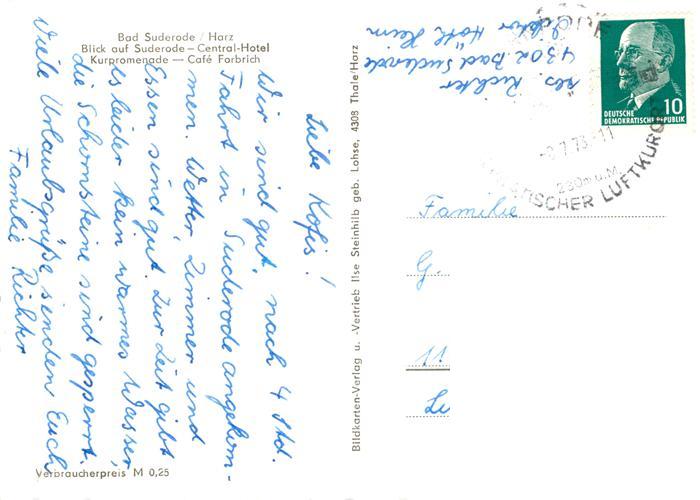 Bad Suderode / Harz
Blick auf Suderode – Central-Hotel
Kurpromenade — Café Forbrich
Liebe Kofis!
Wir sind gut, nach 4 Std.
Fahrt in Suderode angekom-
men. Wetter, Zimmer und
Essen sind gut. Zur Zeit gibt
es leider kein warmes Wasser,
die Schornsteine sind gesperrt.
Viele Urlaubsgrüße senden Euch
Familie Richter
Verbraucherpreis M 0,25
Bildkarten-Verlag u. -Vertrieb Ilse Steinhilb geb. Lohse, 4308 Thale/Harz
Abs. Richter
4302 Bad Suderode
Heim
DEUTSCHE
DEMOKRATISCHE REPUBLIK
10
7.73-11
230m ü.M.
ISCHER LUFTKUROR
Familie
G.
11
Le